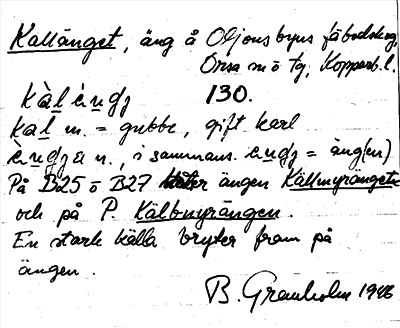 Kallänget, äng å Oljonsbyns fäbodskog,
Orsa sn ö tg, Kopparb.l.
kàlèndz 130.
kal m. = gubbe, gift karl
èndza n., i sammans. endz = äng(en)
På B25 ö B27 heter ängen Källmyrängets
och på P. Källmyrängen.
En stark källa bryter fram på
ängen.
B. Granholm 1946